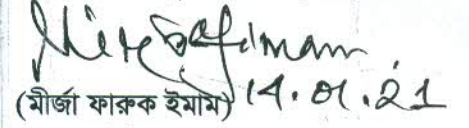 (মীর্জা ফারুক ইমাম) 14.01.21